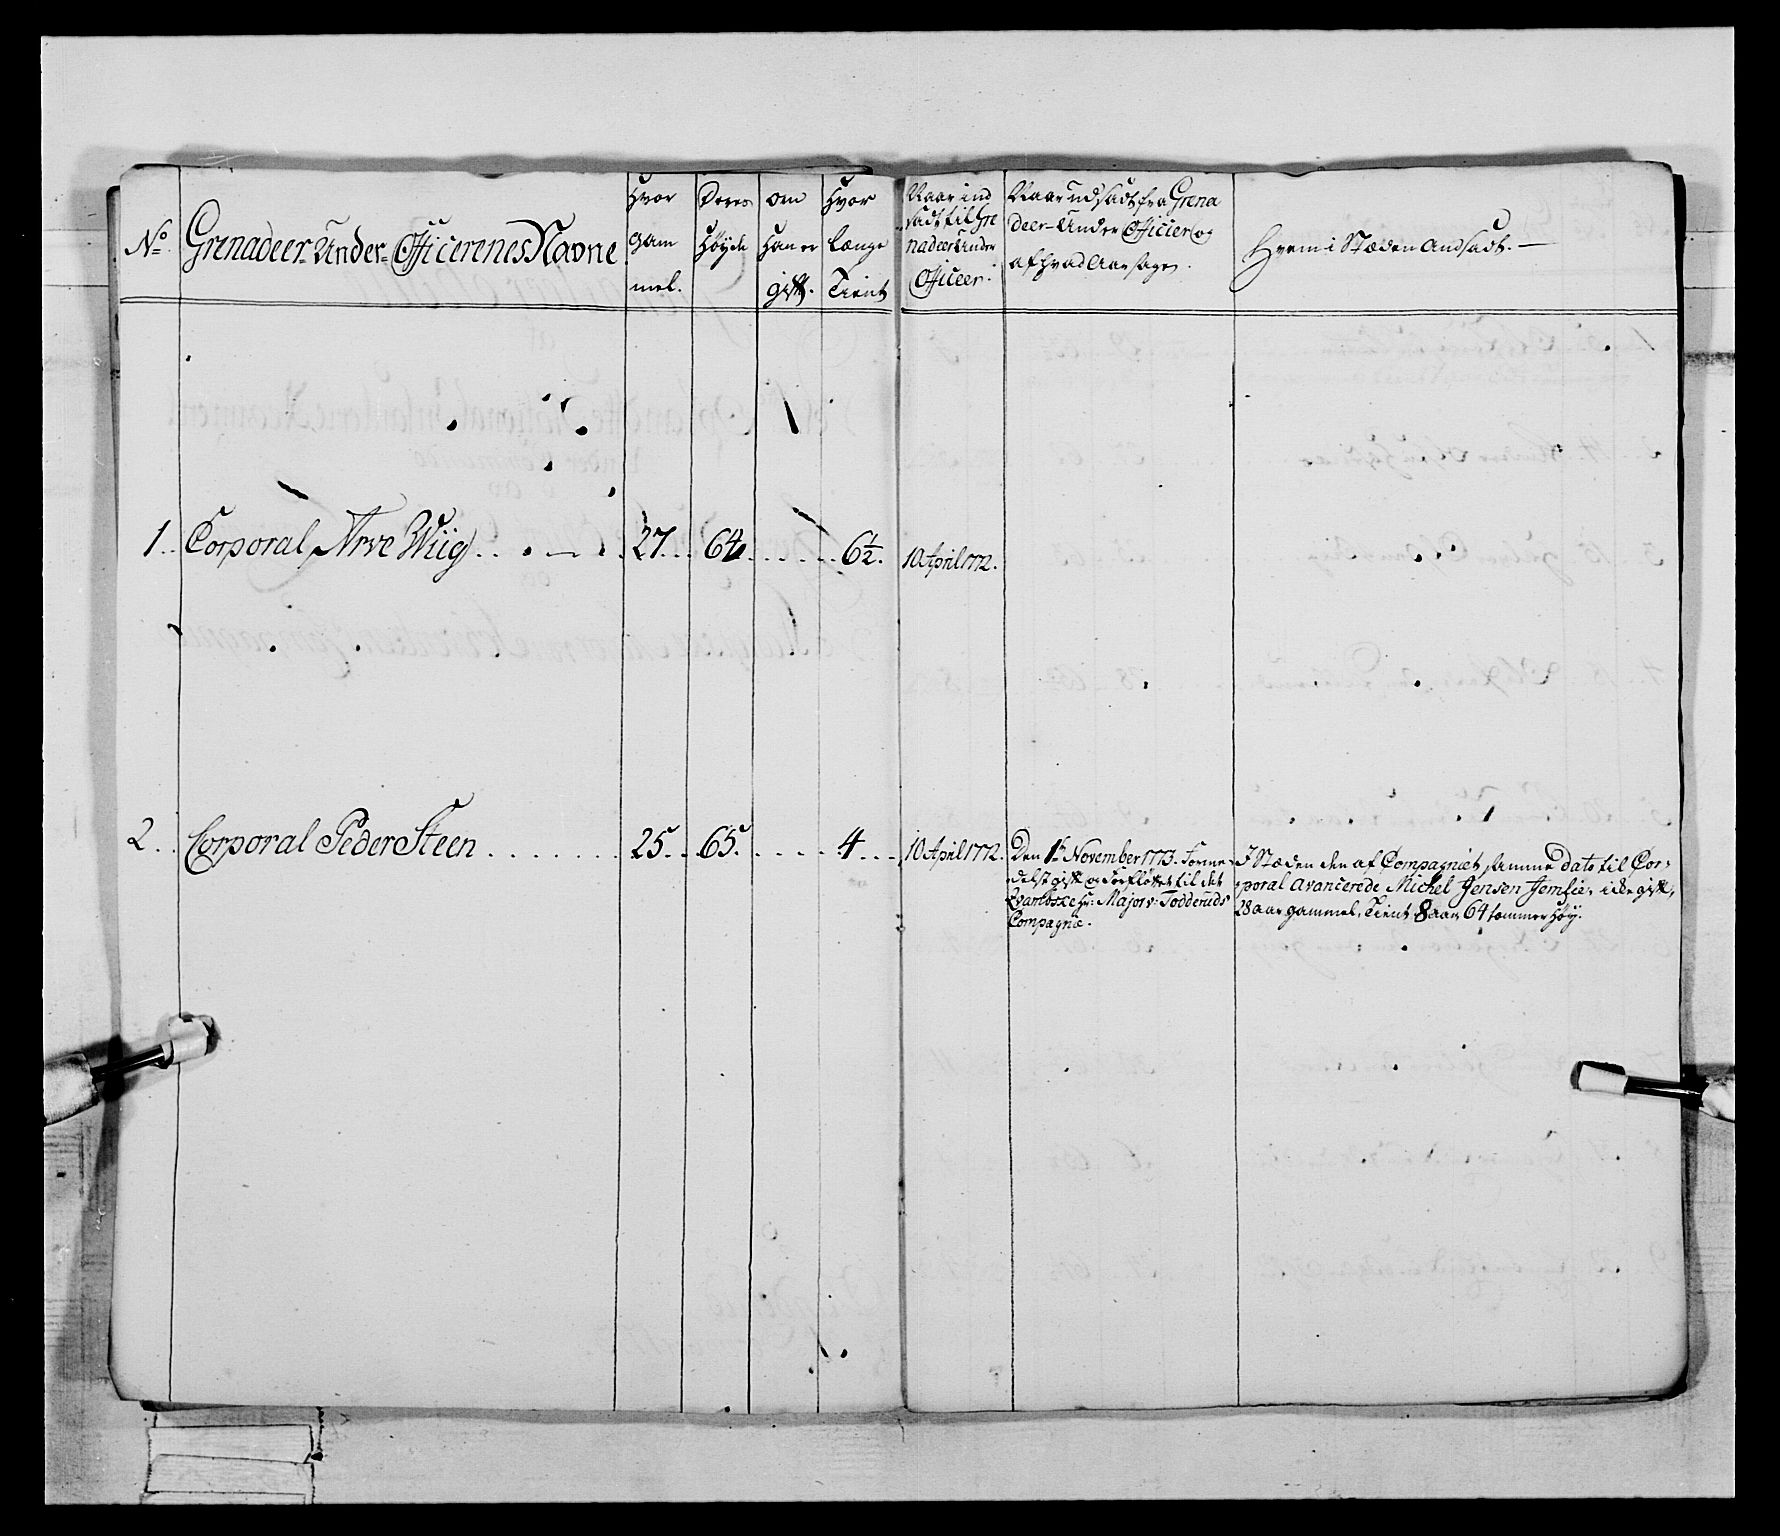 No. Grenadeer-Under-Officerenes Navne
Hvor gammel.
Deres Høyde
om Han er gift.
Hvor længe Tient
Naar indsadt til Grenadeer Under Officeer.
Naar udsadt fra Grenadeer-Under Officier og af hvad Aarsage.
Hvem i Stæden Andsadt.
1. Corporal Arve Wiig 27 64 6½. 10 April 1772.
2. Corporal Peder Steen 25 65 4 10 April 1772.
Den 1te November 1773. Forme-
delst gift og Forfløttet til det
Hr: Major v: Todderuds
Compagnie.
I Stæden den af Compagniet samme Dato til Cor-
poral Avancerede Michel Jensen, icke gift,
28 aar gammel, Tient 8 aar, 64 tommer Høy.